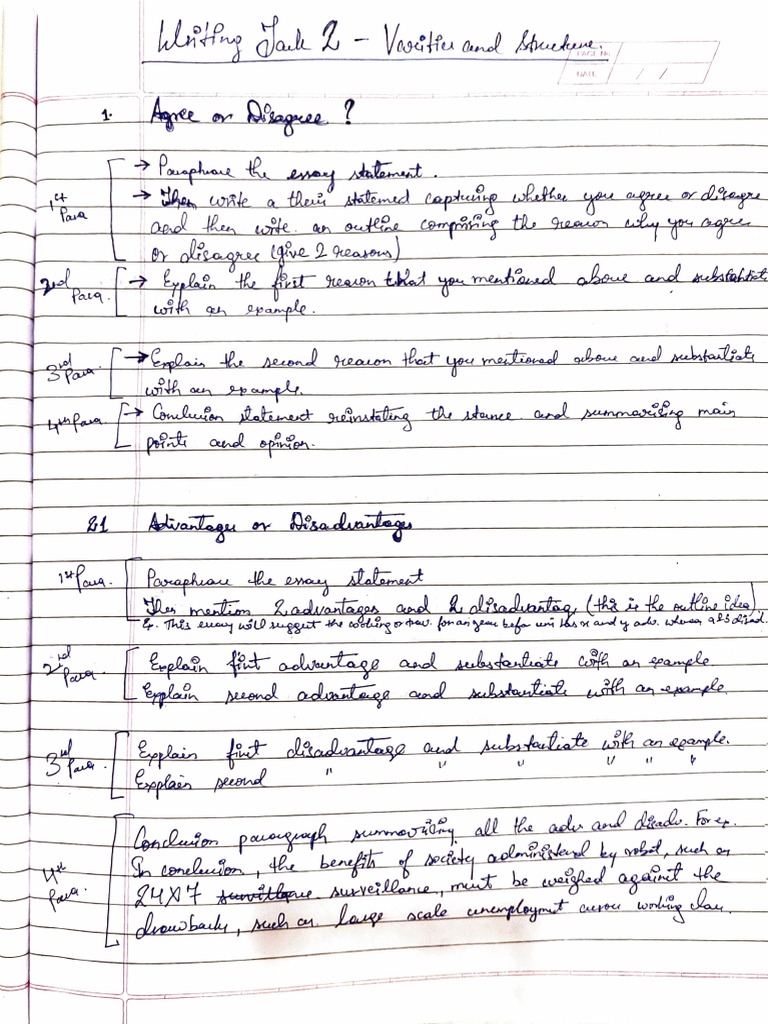 Writing Task 2 - Varities and Structure.
PAGE No.
DATE / /
1. Agree or Disagree ?
1st Para
→ Paraphrase the essay statement.
→ Then write a thesis statemed capturing whether you agree or disagree
and then write an outline comprising the reason why you agree
or disagree (give 2 reasons)
2nd Para.
→ Explain the first reason that you mentioned above and substantiate
with an example.
3rd Para.
→ Explain the second reason that you mentioned above and substantiate
with an example.
4th Para
→ Conclusion statement reinstating the stance and summarising main
points and opinion.
21 Advantages or Disadvantages
1st Para.
Paraphrase the essay statement
Then mention 2 advantages and 2 disadvantag (this is the outline idea)
This essay will suggest the working or trav. for an year before uni has x and y adv. whereas a & b disad.
2nd Para.
Explain first advantage and substantiate with an example
Explain second advantage and substantiate with an example
3rd Para.
Explain first disadvantage and substantiate with an example.
Explain second " " " " " "
4th Para.
Conclusion paragraph summarising all the adv and disadv. For ex.
In conclusion, the benefits of society administered by robot, such as
24X7 surveillance, must be weighed against the
drawbacks, such as large scale unemployment across working class.